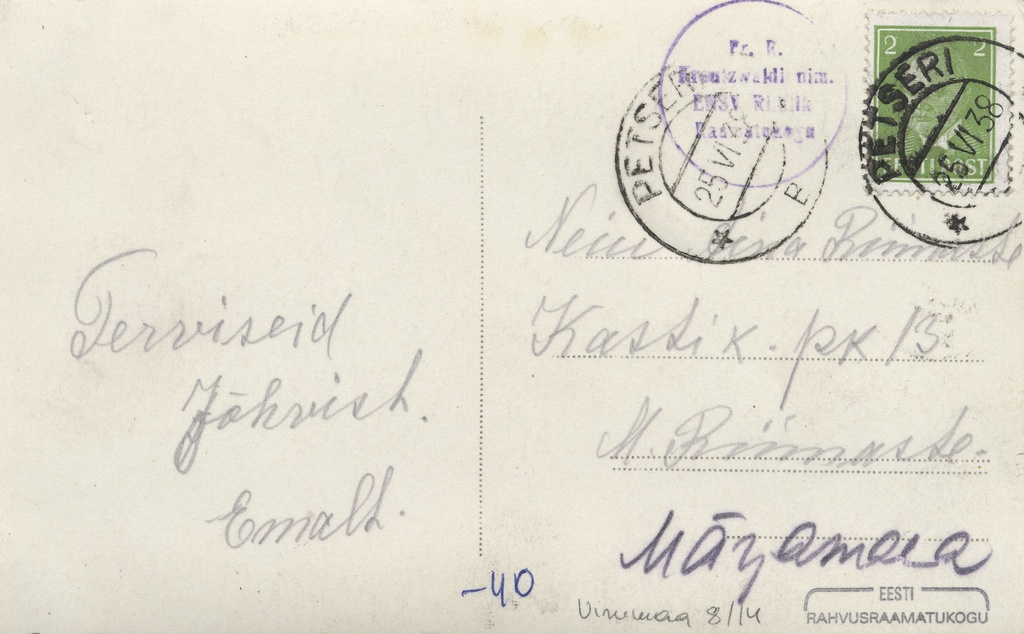 Fr. R.
Kreutzwaldi nim.
ENSV Riiklik
Raamatukogu
2 2
EESTI POST
PETSERI
25 VI 38
B
PETSERI
25 VI 38
Terviseid
Jõhvist.
Emalt.
Neiu Riimaste
Kastik. pk 13
M. Riimaste.
Märjamaa
-40
Virumaa 8/14
EESTI
RAHVUSRAAMATUKOGU